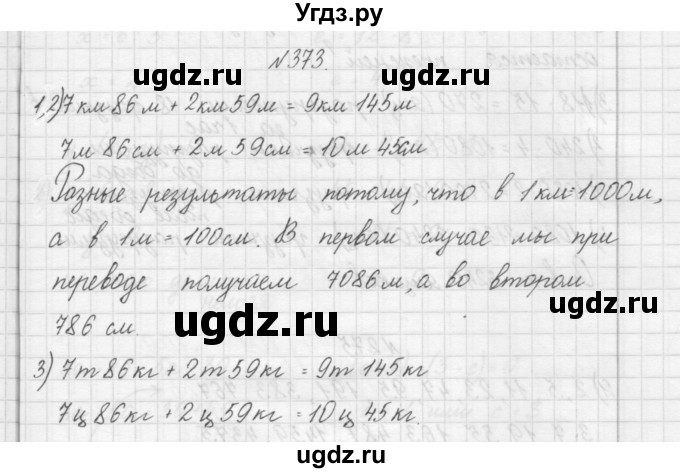 Угдз.ру
N373.
ugdz.ru ugdz.ru
1,2) 7 км 86 м + 2 км 59 м = 9 км 145 м
7 м 86 см + 2 м 59 см = 10 м 45 см
ugdz.ru ugdz.ru
Разные результаты потому, что в 1 км = 1000 м,
а в 1 м = 100 см. В первом случае мы при
ugdz.ru
переводе получаем 7086 м, а во втором
786 см.
ugdz.ru ugdz.ru
3) 7 т 86 кг + 2 т 59 кг = 9 т 145 кг
7 ц 86 кг + 2 ц 59 кг = 10 ц 45 кг.
ugdz.ru